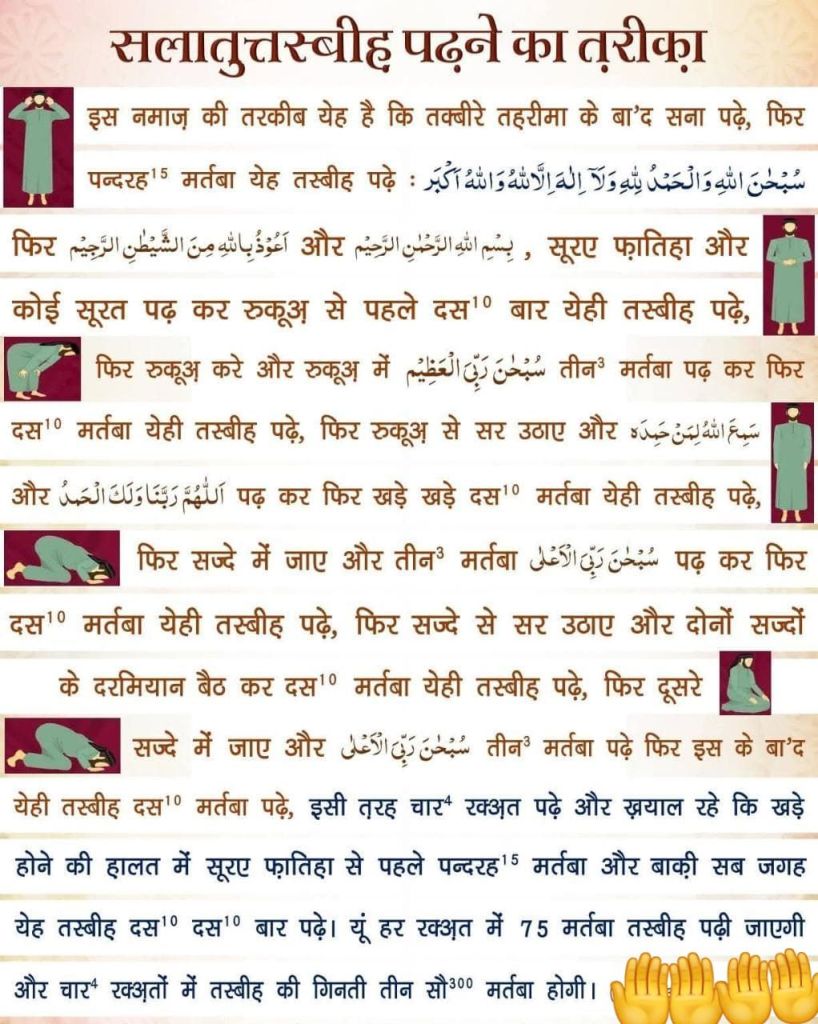 सलातुत्तस्बीह़ पढ़ने का त़रीक़ा
इस नमाज़ की तरकीब येह है कि तक्बीरे तह़रीमा के बा'द सना पढ़े, फिर
पन्दरह15 मर्तबा येह तस्बीह़ पढ़े : سُبْحٰنَ اللهِ وَالْحَمْدُ لِلّٰهِ وَلَآ اِلٰهَ اِلَّا اللهُ وَاللهُ اَكْبَر
फिर اَعُوْذُ بِاللهِ مِنَ الشَّيْطٰنِ الرَّجِيْم और بِسْمِ اللهِ الرَّحْمٰنِ الرَّحِيْم , सूरए फ़ातिह़ा और
कोई सूरत पढ़ कर रुकूअ़ से पहले दस10 बार येही तस्बीह़ पढ़े,
फिर रुकूअ़ करे और रुकूअ़ में سُبْحٰنَ رَبِّىَ الْعَظِيْم तीन3 मर्तबा पढ़ कर फिर
दस10 मर्तबा येही तस्बीह़ पढ़े, फिर रुकूअ़ से सर उठाए और سَمِعَ اللهُ لِمَنْ حَمِدَه
और اَللّٰهُمَّ رَبَّنَا وَلَكَ الْحَمْدُ पढ़ कर फिर खड़े खड़े दस10 मर्तबा येही तस्बीह़ पढ़े,
फिर सज्दे में जाए और तीन3 मर्तबा سُبْحٰنَ رَبِّىَ الْاَعْلٰى पढ़ कर फिर
दस10 मर्तबा येही तस्बीह़ पढ़े, फिर सज्दे से सर उठाए और दोनों सज्दों
के दरमियान बैठ कर दस10 मर्तबा येही तस्बीह़ पढ़े, फिर दूसरे
सज्दे में जाए और سُبْحٰنَ رَبِّىَ الْاَعْلٰى तीन3 मर्तबा पढ़े फिर इस के बा'द
येही तस्बीह़ दस10 मर्तबा पढ़े, इसी त़रह़ चार4 रक्अ़त पढ़े और ख़याल रहे कि खड़े
होने की ह़ालत में सूरए फ़ातिह़ा से पहले पन्दरह15 मर्तबा और बाक़ी सब जगह
येह तस्बीह़ दस10 दस10 बार पढ़े। यूं हर रक्अ़त में 75 मर्तबा तस्बीह़ पढ़ी जाएगी
और चार4 रक्अ़तों में तस्बीह़ की गिनती तीन सौ300 मर्तबा होगी।